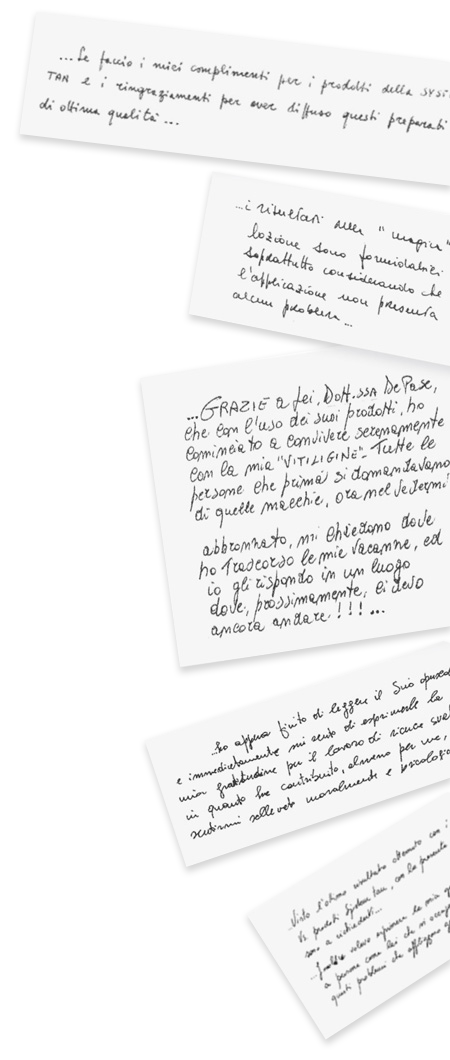 ...Le faccio i miei complimenti per i prodotti della SYST
TAN e i ringraziamenti per aver diffuso questi preparati
di ottima qualità ...
...i risultati della "magica"
lozione sono formidabili
soprattutto considerando che
l'applicazione non presenta
alcun problema...
...GRAZIE a Lei, Dott.ssa De Pase,
che con l'uso dei suoi prodotti, ho
cominciato a convivere serenamente
con la mia "VITILIGINE". Tutte le
persone che prima si domandavano
di quelle macchie, ora nel vedermi
abbronzato, mi chiedono dove
ho trascorso le mie vacanze, ed
io gli rispondo in un luogo
dove, prossimamente, ci devo
ancora andare !!! ...
...ho appena finito di leggere il Suo
e immediatamente mi sento di esprimerle la
mia gratitudine per il lavoro di ricerca
in quanto ha contribuito, almeno per me,
sentirmi sollevato moralmente e
...Visto l'ottimo risultato ottenuto con i
prodotti System Tan, con la presente
sono a richiederVi...
...Inoltre volevo esprimere la mia
a persone come lei che si
questi problemi che affliggono